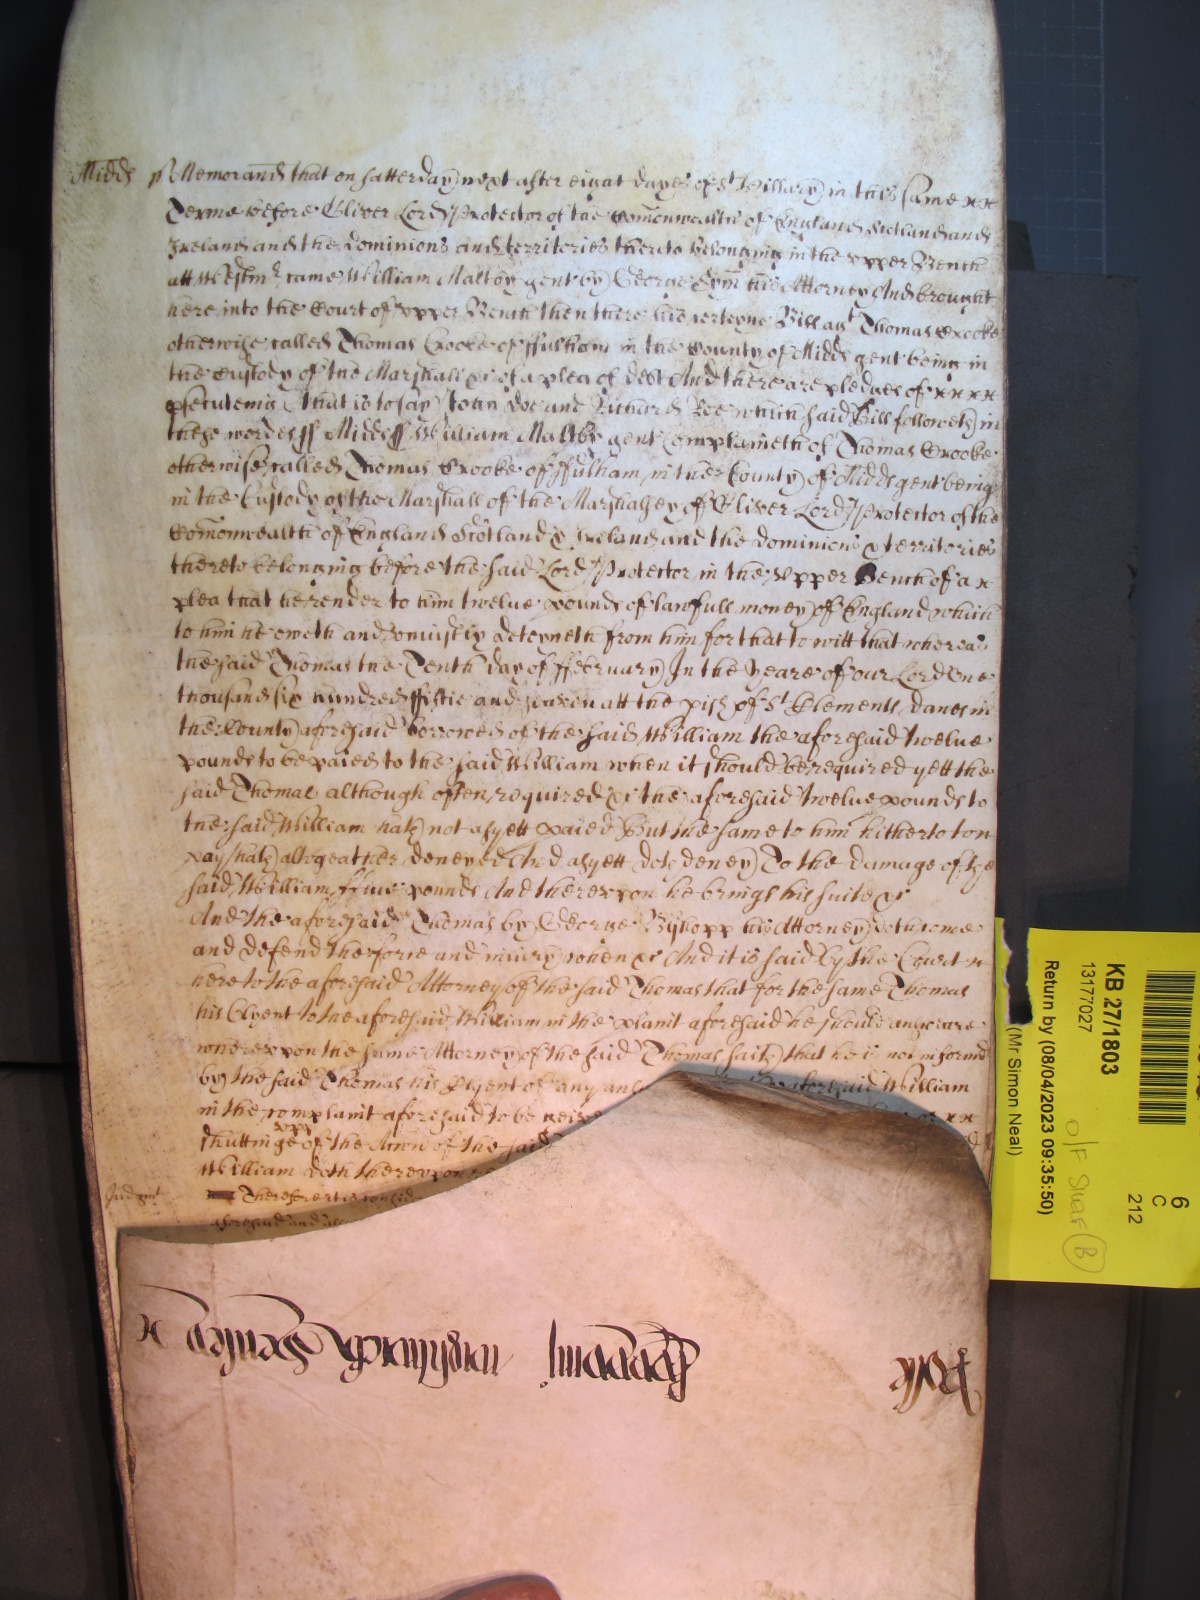 Midds ss Memorand that on Satterday next after eight dayes of St Hillary in this same xx
Terme before Oliver Lord Protector of the Comonwealth of England Scotland and
Ireland and the dominions and territories thereto belonging in the upper Bench
att Westmr came William Maltby gent by George Sym his Attorney And brought
here into the Court of upper Bench then there his certeyne Bill agt Thomas Crooke
otherwise called Thomas Crooke of ffulham in the County of Midds gent being in
the Custody of the Marshall &c of a plea of debt And there are pledges of xxxx
psecuteing that is to say John Doe and Richard Roe which said Bill followeth in
these wordes ss Midds ss William Maltby gent Complaineth of Thomas Crooke
otherwise called Thomas Crooke of ffulham in the County of Midds gent being
in the Custody of the Marshall of the Marshalsey of Oliver Lord Protector of the
Comonwealth of England Scotland & Ireland and the dominions & territories
thereto belonging before the said Lord Protector in the Upper Bench of a x
plea that he render to him twelve pounds of lawfull money of England which
to him he oweth and uniustly deteyneth from him for that to witt that whereas
the said Thomas the Tenth day of ffebruary In the yeare of our Lord One
thousand six hundred fiftie and seaven att the pish of St Clements danes in
the County aforesaid borrowed of the said William the aforesaid twelve
pounds to be paied to the said William when it should be required yett the
said Thomas although often required &c the aforesaid twelve pounds to
the said William hath not as yett paied But the same to him hitherto to
pay hath altogeather denyed And as yett doth deney To the damage of the
said William ffive pounds And thereupon he brings his suite &c
And the aforesaid Thomas by George Bishopp his Attorney doth come
and defend the force and iniury when &c And it is said by the Court x
here to the aforesaid Attorney of the said Thomas that for the same Thomas
his Clyent to the aforesaid William in the plaint aforesaid he should answeare
whereupon the same Attorney of the said Thomas saith that he is not informed
by the said Thomas his Clyent of any aforesaid William
in the complaint aforesaid to be xx
shuttinge upp of the Accon of the said
William doth thereupon
Judgmt Therefore it is
aforesaid and
Rolle
KB 27/1803
13177027
Return by (08/04/2023 09:35:50)
(Mr Simon Neal)
6
C
212
B